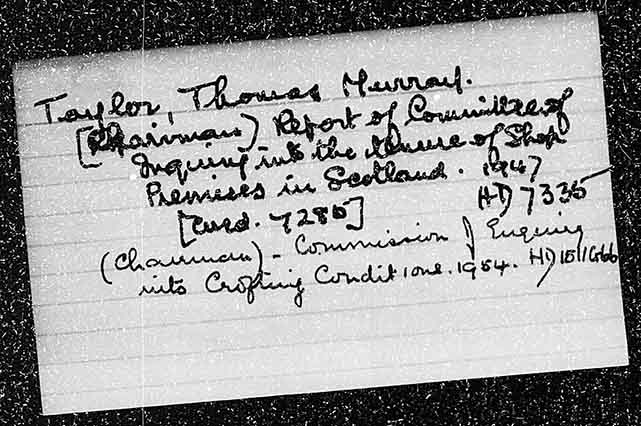 Taylor, Thomas Murray.
[Chairman) Report of Committee of
Inquiry into the tenure of Shop
Premises in Scotland. 1947
[Cmd. 7285] HD 7335
(Chairman) - Commission of Enquiry
into Crofting Conditions. 1954. HD